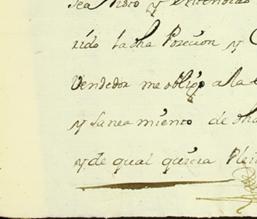 sea Pidio y Defendido
rido la dha Posecion y C
Vendedor me obligo a la
y Saneamiento de dha
y de qual quiera Pleit